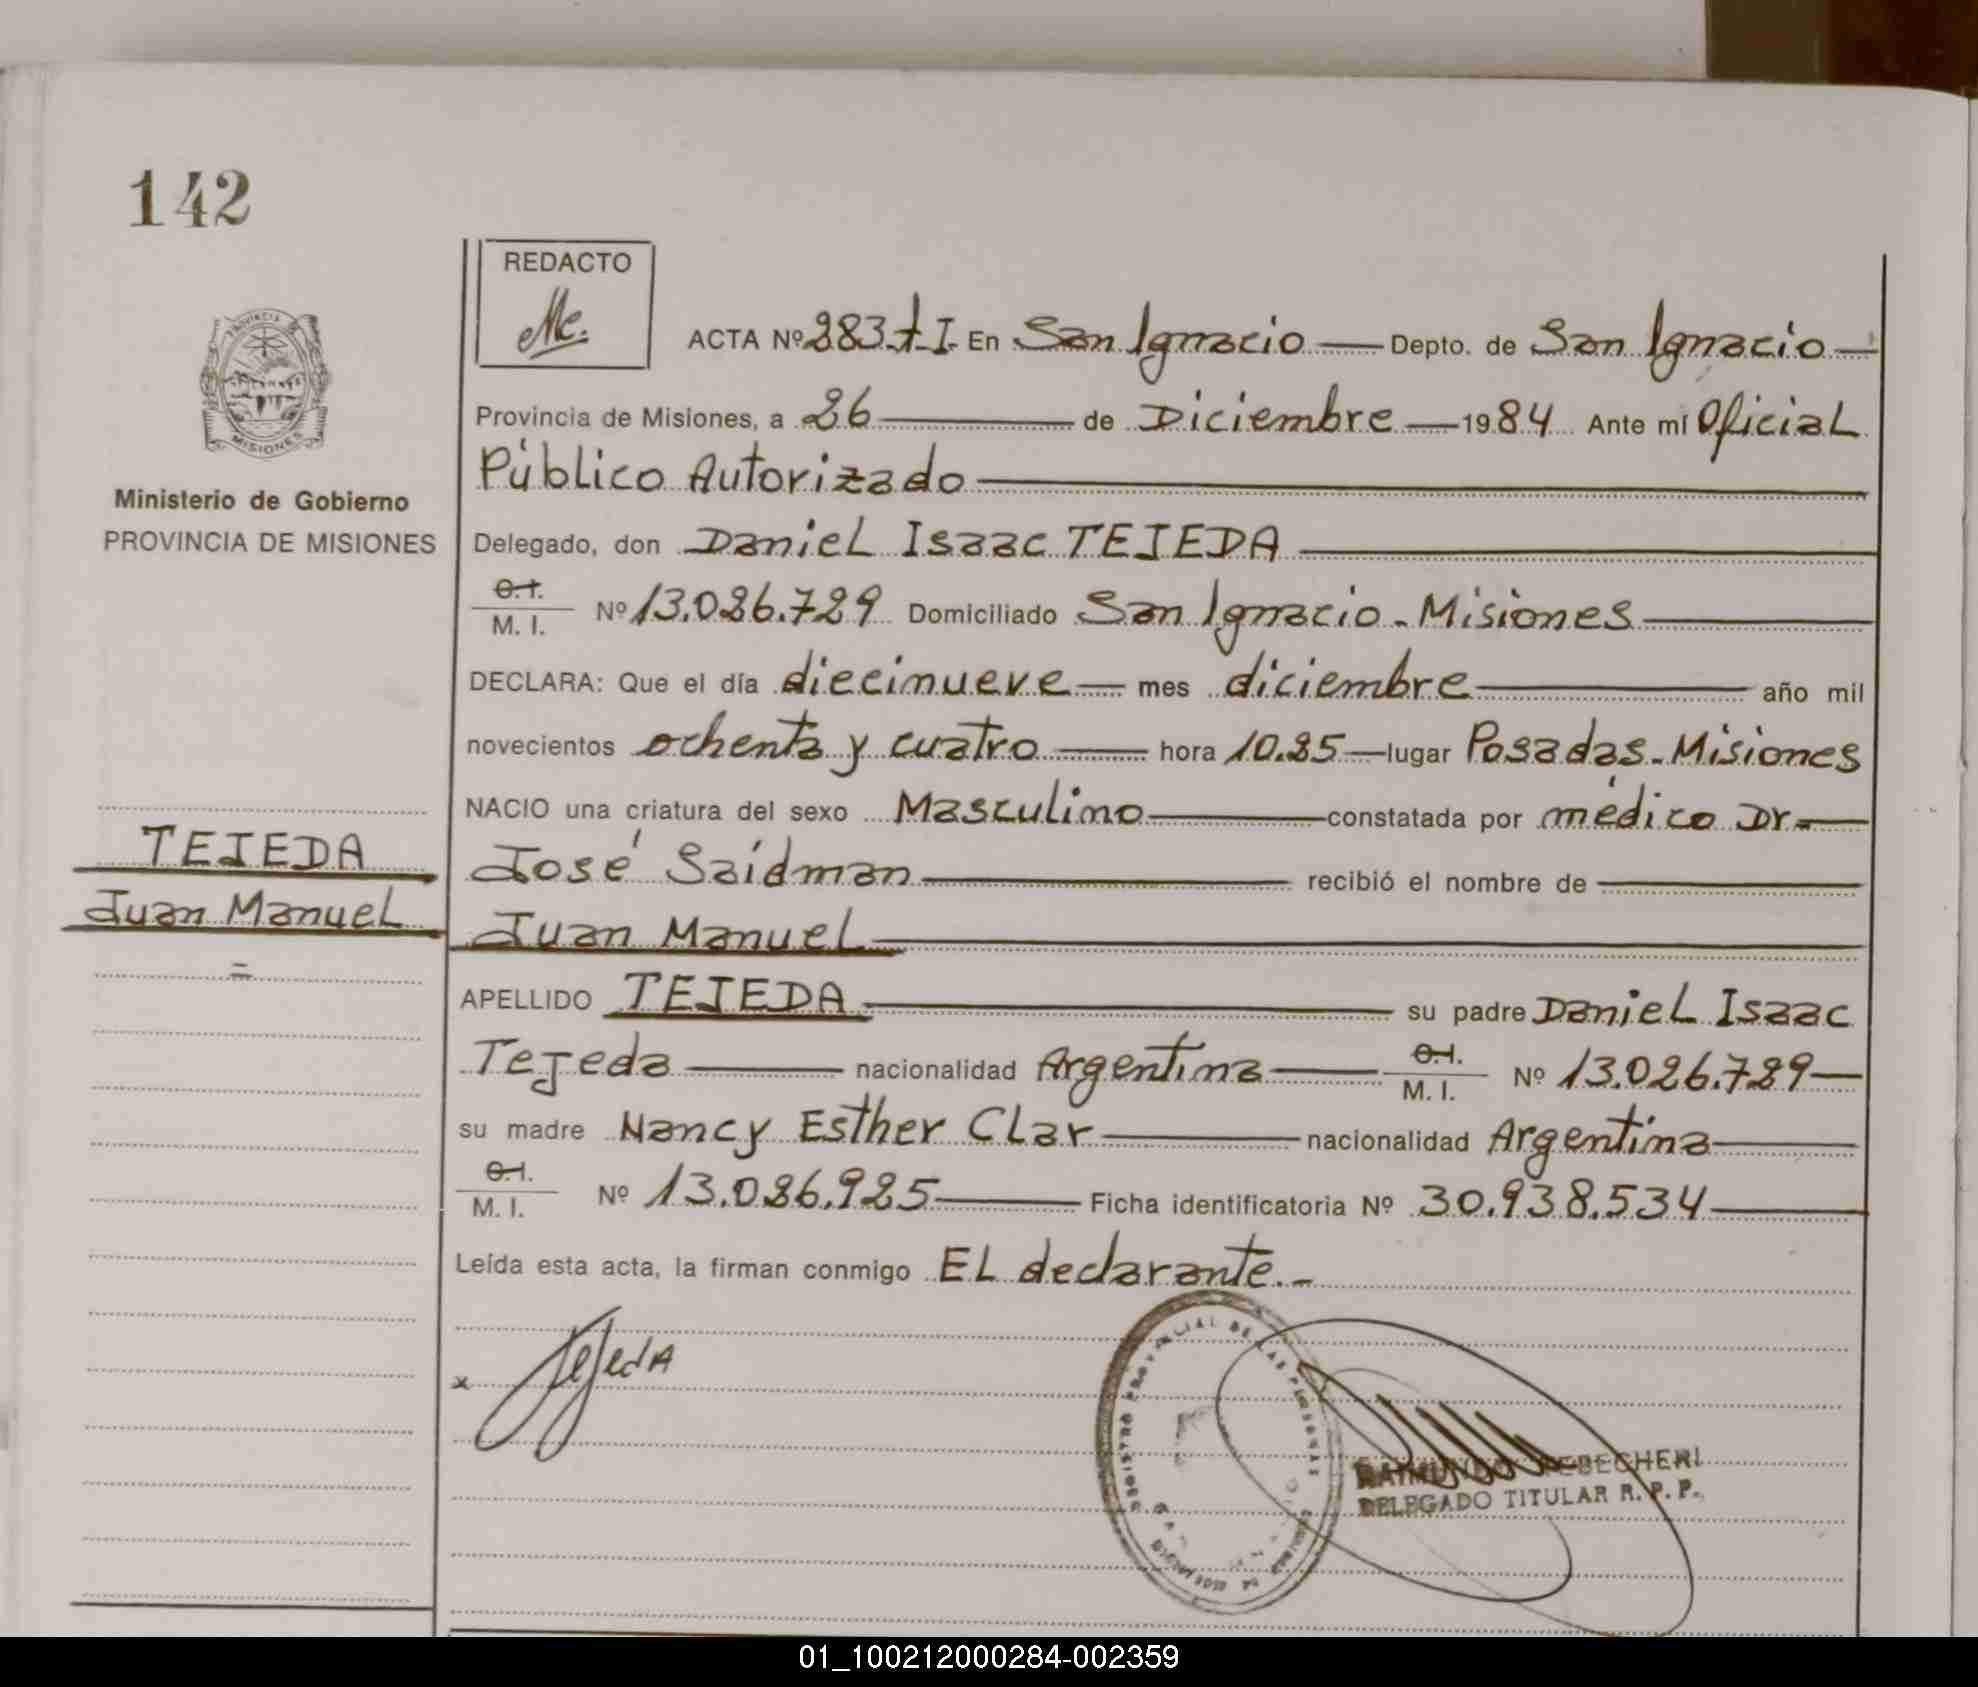 142
REDACTO
Mc.
PROVINCIA
MISIONES
Ministerio de Gobierno
PROVINCIA DE MISIONES
TEJEDA
Juan Manuel
ACTA Nº 283.t.I. En San Ignacio Depto. de San Ignacio
Provincia de Misiones, a 26 de Diciembre 1984 Ante mí Oficial
Público Autorizado
Delegado, don Daniel Isaac TEJEDA
C.I. M. I. Nº 13.026.729 Domiciliado San Ignacio - Misiones
DECLARA: Que el día diecinueve mes diciembre año mil
novecientos ochenta y cuatro hora 10.25 lugar Posadas - Misiones
NACIO una criatura del sexo Masculino constatada por médico Dr.
José Saidman recibió el nombre de
Juan Manuel
APELLIDO TEJEDA su padre Daniel Isaac
Tejeda nacionalidad Argentina C.I. M. I. Nº 13.026.729
su madre Nancy Esther Clar nacionalidad Argentina
C.I. M. I. Nº 13.026.925 Ficha identificatoria Nº 30.938.534
Leída esta acta, la firman conmigo El declarante.-
x Tejeda
REGISTRO PROVINCIAL DE LAS PERSONAS
DELEGADO TITULAR R. P. P.
01_100212000284-002359